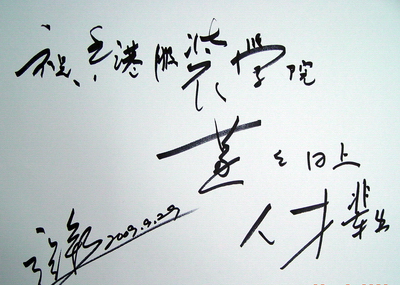 祝香港服装学院
蒸々日上
人才辈出
2009.9.29